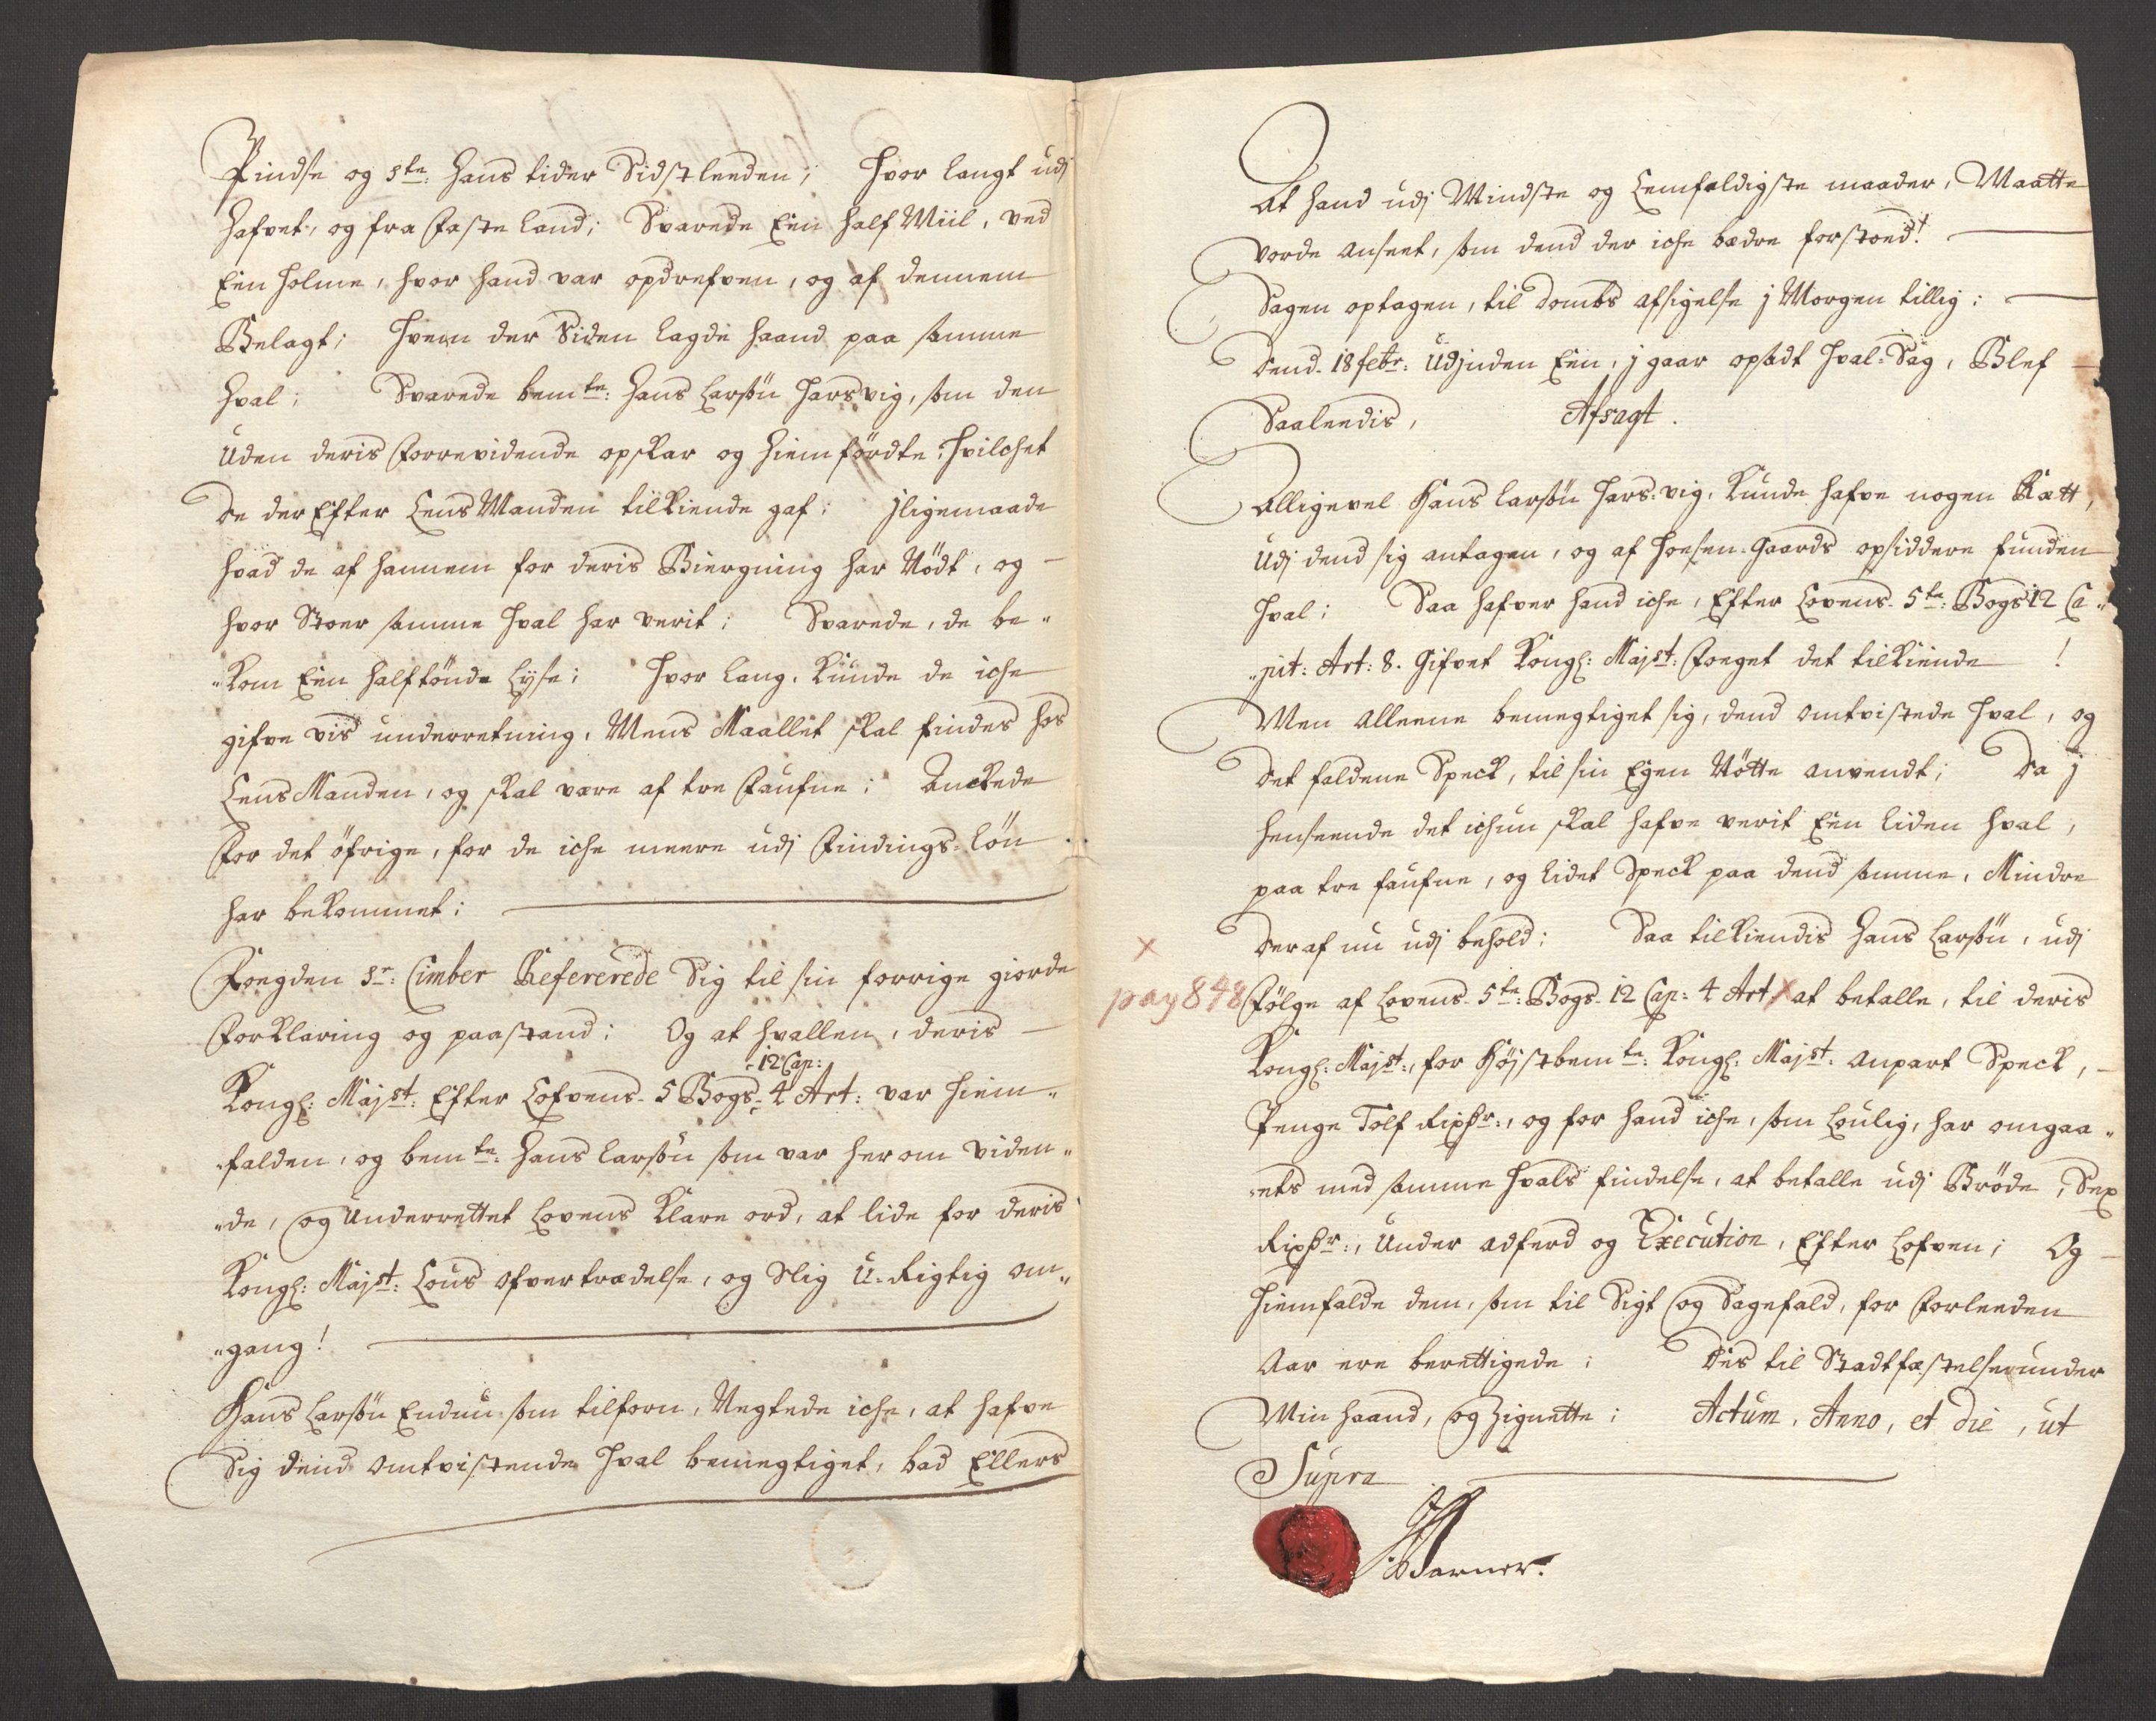 Pindse og Ste: Hans tider Sidstleeden; Hvor langt udj
Hafvet, og fra Faste Land; Svarede Een half Miil, ved
Een Holme, hvor hand var opdrefven, og af dennem
Belagt; Hvem der Siden lagde haand paa samme
Hval; Svarede bemte: Hans Larsön Harsvig, som den
Uden deris Forrevidende opskar og hiemfördte; Hvilchet
de der Efter LensManden tilkiende gaf; Jligemaade
hvad de af hannem for deris Biergning har Nödt, og
hvor Stoer samme Hval har verit; Svarede, de be„
„kom Een half tönde Lyse; Hvor lang, kunde de iche
gifve vis underretning, Mens Maallet skal findes hos
LensManden, og skal være af tre Faufne; Anckede
For det öfrige, for de iche meere udj Findings-Lön
har bekommet;
Fogden Sr: Cimber Refererede Sig til sin forrige giorde
Forklaring og paastand; Og at hvallen, deris
Kongl: Majst: Efter Lofvens 5 Bogs- 12 Cap: 4 Art: var hiem„
„falden, og bemte: Hans Larsön som var her om viden„
„de, og Underrettet Lovens klare ord, at lide for deris
Kongl: Majst: Lous ofvertrædelse, og Slig U-Rigtig om„
„gang!
Hans Larsön Endnu som tilforn, Negtede iche, at hafve
Sig dend omtvistende Hval bemegtiget, bad Ellers
At hand udj Mindste og Lemfældigste maader, Maatte
vorde anseet, som dend der iche bædre forstoed!
Sagen optagen, til Dombs afsigelse j Morgen tillig;
Dend 18 febr: Udjnden Een, j gaar opsadt Hval-Sag, Blef
Saaleedis, Afsagt.
Alligevel Hans Larsön Hars-vig, kunde hafve nogen Rætt,
Udj dend sig antagen, og af Hoesen-Gaards opsiddere funden
Hval; Saa hafver hand iche, Efter Lovens 5te: Bogs 12 Ca„
„pit: Art: 8. Gifvet Kongl: Majst: Foeget det tilkiende!
Men alleene bemegtiget sig, dend omtvistede Hval, og
det faldene Speck, til sin Egen Nötte anvendt; Da j
henseende det ichun skal hafve verit Een liden Hval,
paa tre faufne, og lidet Speck paa dend samme, Mindre
der af nu udj behold; Saa tilkiendis Hans Larsön, udj
x
pag 848 Fölge af Lovens 5te: Bogs 12 Cap: 4 Art x at betalle, til deris
Kongl: Majst:, for Höjstbemte: Kongl: Majst: anpart Speck,
Penge Tolf Rixdr:, og for hand iche, som Loulig, har omgaa„
„ets med samme Hvals findelse, at betalle udj Bröde, Sex
Rixdr:, Under adferd og Execution, Efter Lofven; Og
hiemfalde dem, som til Sigt og Sagefald, for Forleeden
Aar ere berettigede; Dis til Stadfæstelse under
Min Haand, og Zignette; Actum, Anno, et die, ut
Supra
Warner.